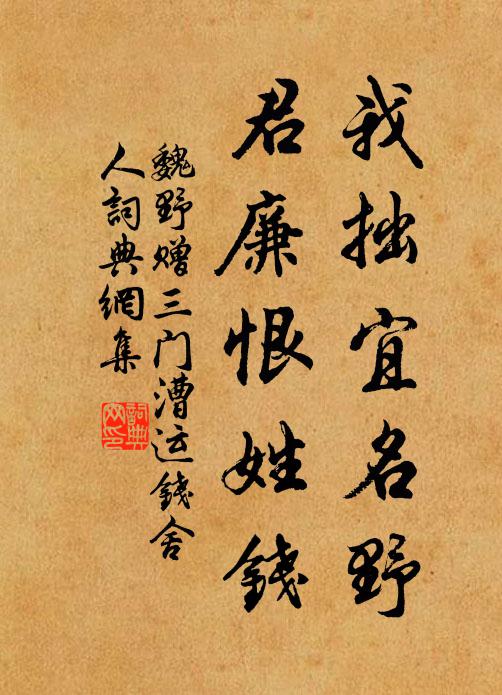 我拙宜名野
君廉恨姓錢
魏野赠三门漕运錢舍
人詞典網集
詞典网印